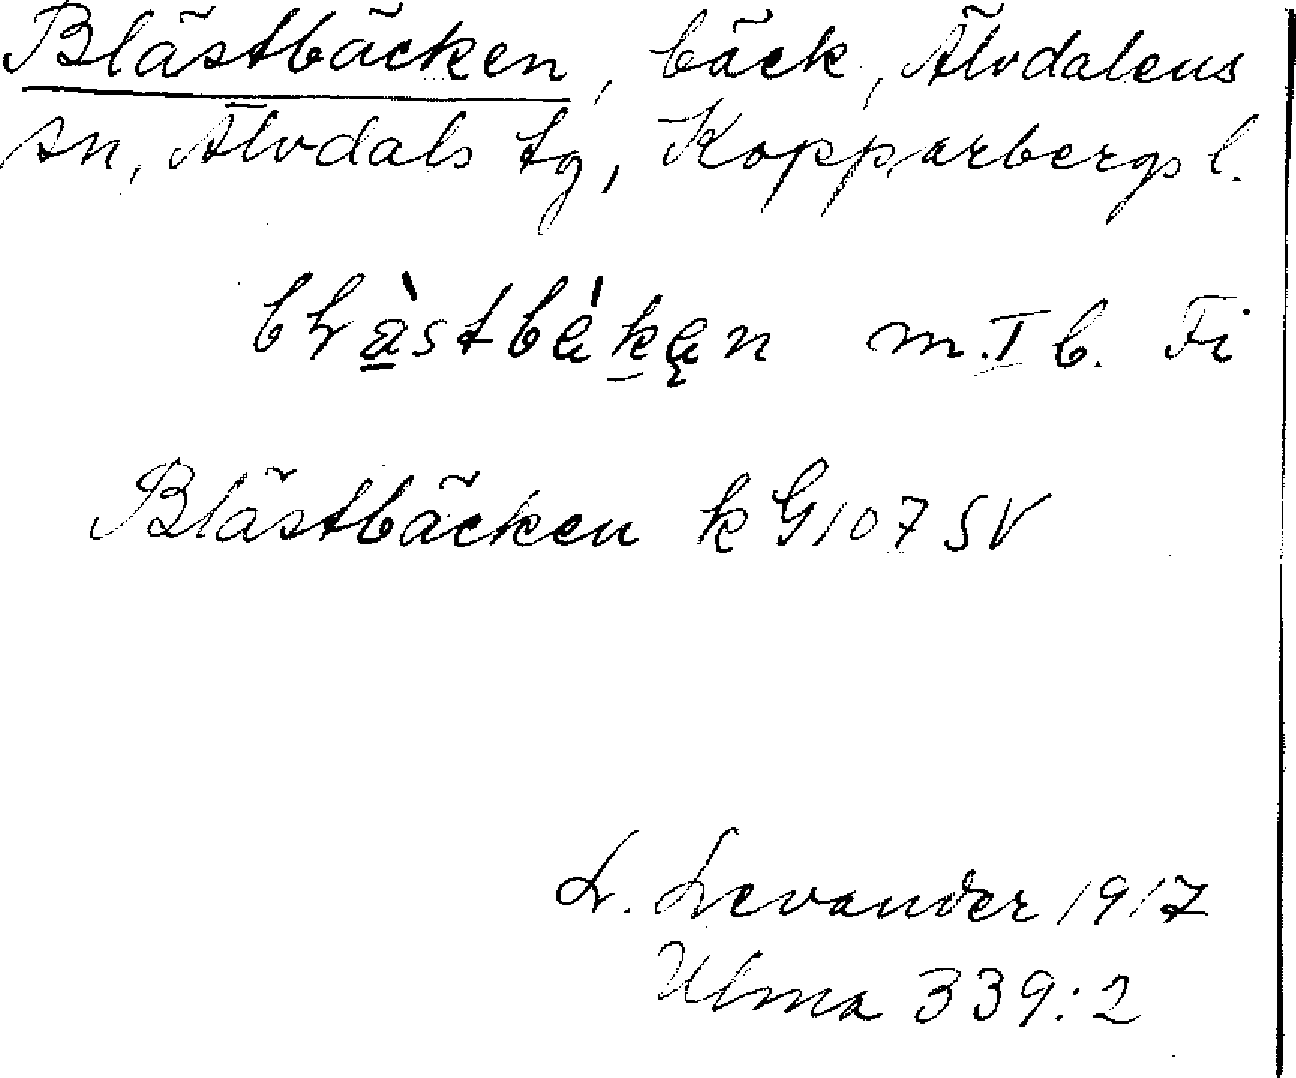 Blästbäcken, bäck, Älvdalens
sn, Älvdals tg, Kopparbergs l.
m. I b. Fi
Blästbäcken k G 107 SV
L. Levander 1917
Ulma 339:2